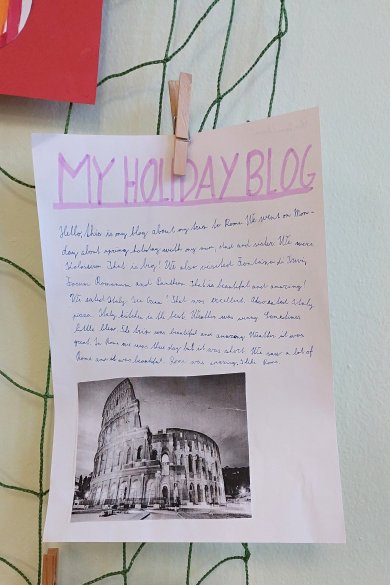 MY HOLIDAY BLOG
Hello, this is my blog about my trip to Rome. We went on Mon-
day about spring holiday with my mum, dad and sister. We were
Koloseum. That is big! We also visited Fontána di Trevi,
Forum Romanum and Pantheon. That is beautiful and amazing!
We eated Italy Ice Cream! That was excellent. Also we eated Italy
pizza. Italy kitchen is the best. Weather was sunny. Sometimes
little blow. The trip was beautiful and amazing. Weather it was
great. In Rome we was three day but it was short. We saw a lot of
Rome and it was beautiful. Rome was amazing. I like Rome.